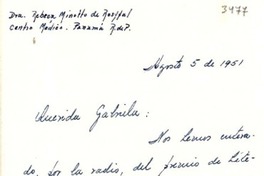 Dra. Rebeca Minotto de Rospital
Centro Medico. Panamá R. de P.
3477
Agosto 5 de 1951
Querida Gabriela:
Nos hemos entera-
do, por la radio, del premio de Lite-